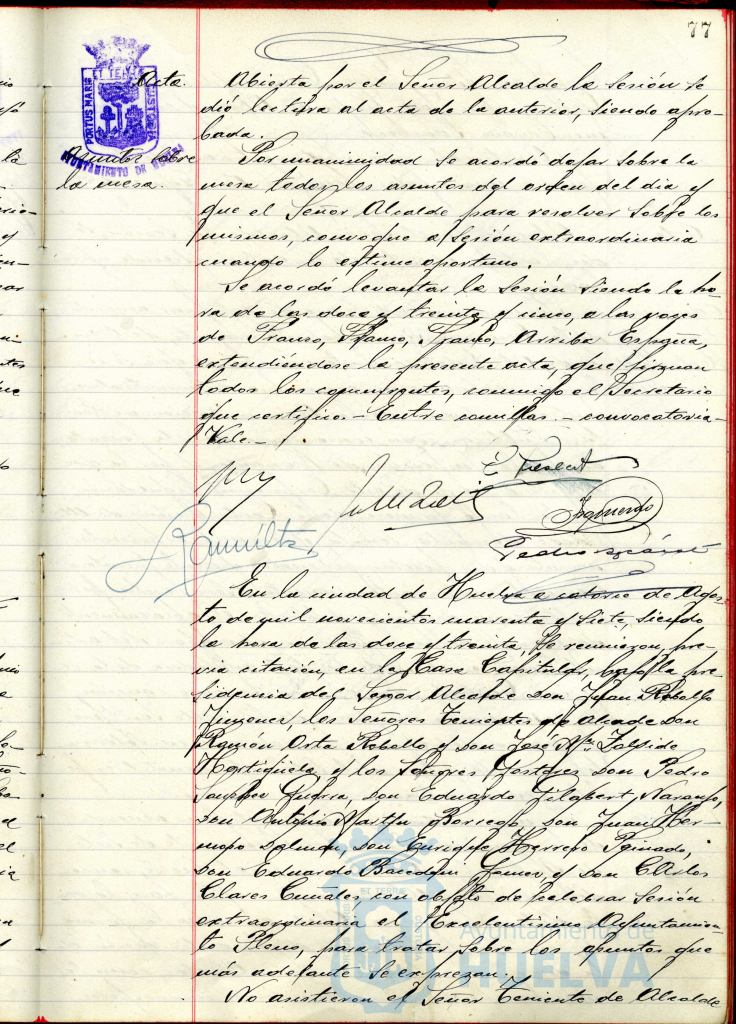 77
Acta.
Abierta por el Señor Alcalde la sesión se
dió lectura al acta de la anterior, siendo apro-
bada.
Asuntos sobre
la mesa.
Por unanimidad se acordó dejar sobre la
mesa todos los asuntos del orden del dia y
que el Señor Alcalde para resolver sobre los
mismos, convoque a sesión extraordinaria
cuando lo estime oportuno.
Se acordó levantar la sesión siendo la ho-
ra de las doce y treinta y cinco, a las voces
de Franco, Franco, Franco, Arriba España,
extendiéndose la presente acta, que firman
todos los concurrentes, conmigo el Secretario
que certifico.- Entre comillas.- convocatoria-
Vale.-
Izquierdo
Pedro
En la ciudad de Huelva a catorce de Agos-
to de mil novecientos cuarenta y siete, siendo
la hora de las doce y treinta, se reunieron, pre-
via citación, en la Casa Capitular, bajo la pre-
sidencia del Señor Alcalde don Juan Rebollo
Jimenez, los Señores Tenientes de Alcalde don
Ramón Orta Rebollo y don José Mª
y los Señores Gestores don Pedro
Sanchez Guerra, don Eduardo Gilabert Naranjo,
don Antonio Martin Borrego, don Juan Her-
moso don Enrique Herrero
don Eduardo y don Carlos
Clares con objeto de celebrar sesión
extraordinaria el Excelentisimo Ayuntamien-
to Pleno, para tratar sobre los asuntos que
más adelante se expresan.
No asistieron el Señor Teniente de Alcalde
PORTUS MARIS ET TERRAE CUSTODIA
AYUNTAMIENTO DE HUELVA
ET TERRAE
Ayuntamiento de
HUELVA